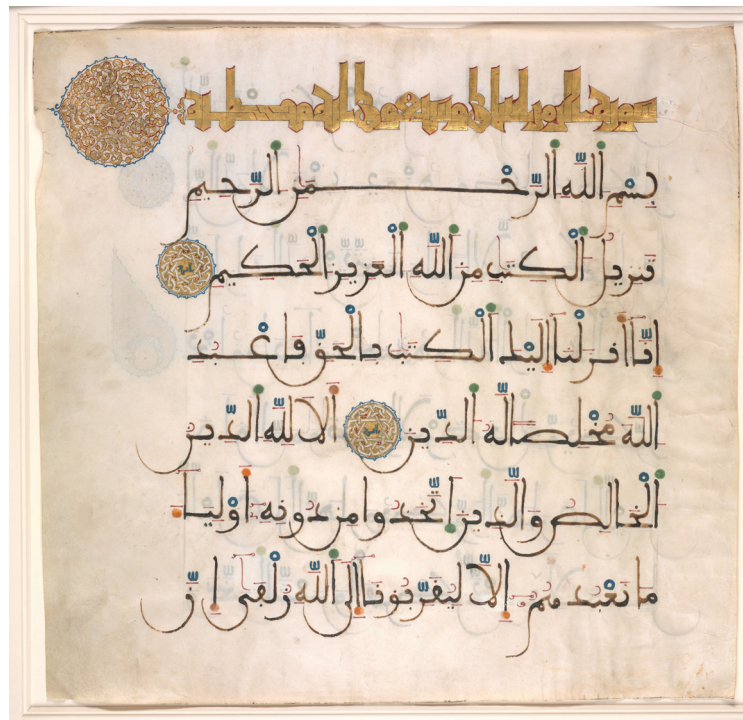 سورة الزمر
بسم الله الرحمن الرحيم
تنزيل الكتب من الله العزيز الحكيم
إنّا أنزلنا إليك الكتب بالحقّ فاعبد
الله مخلصا له الدّين ألا لله الدّين
الخالص والّذين اتّخذوا من دونه أولياء
ما نعبدهم إلّا ليقرّبونا إلى الله زلفى إنّ